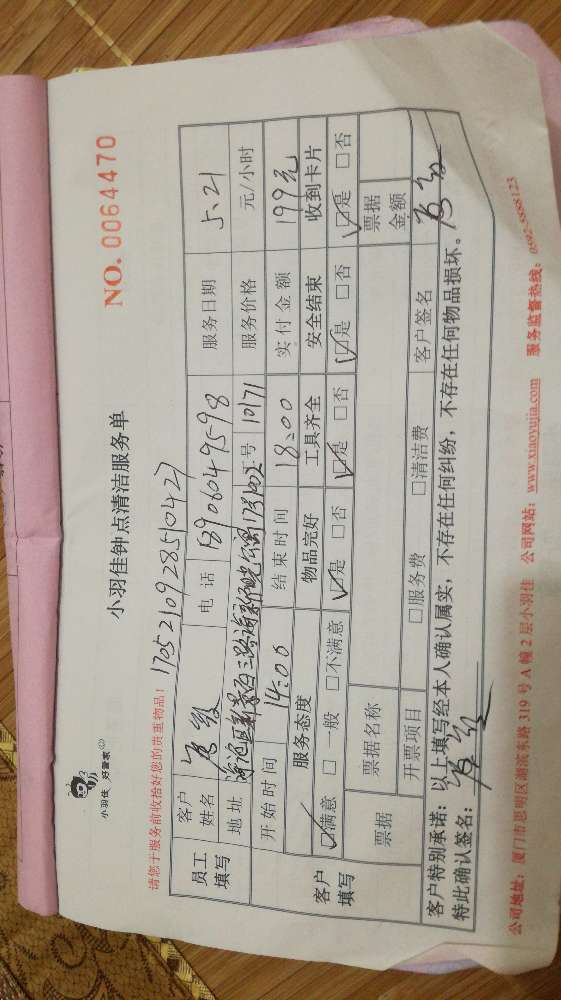 小羽佳 好管家
小羽佳钟点清洁服务单
NO. 0064470
请您于服务前收拾好您的贵重物品！
1705210928510427
员工填写
客户姓名
电话 13906049598
服务日期 5.21
地址
工号 10171
服务价格 元/小时
客户填写
开始时间 14:00
结束时间 18:00
实付金额 199元
服务态度 物品完好 工具齐全 安全结束 收到卡片
☑满意 □一般 □不满意 ☑是 □否 ☑是 □否 ☑是 □否 ☑是 □否
票据 票据名称 票据金额
开票项目 □服务费 □清洁费 客户签名
客户特别承诺：以上填写经本人确认属实，不存在任何纠纷，不存在任何物品损坏。
特此确认签名：
公司地址：厦门市思明区湖滨东路 319 号 A 幢 2 层小羽佳 公司网站：www.xiaoyujia.com 服务监督热线：0592-5888123